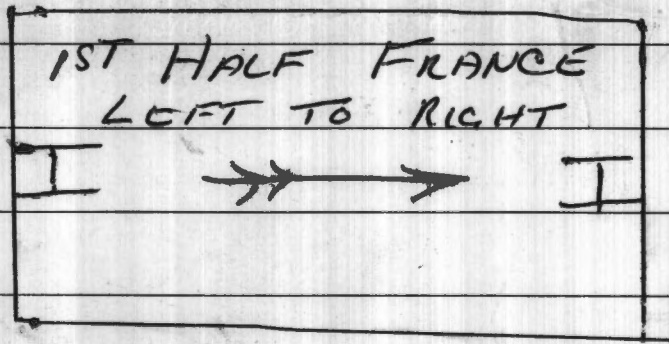 1ST HALF FRANCE
LEFT TO RIGHT